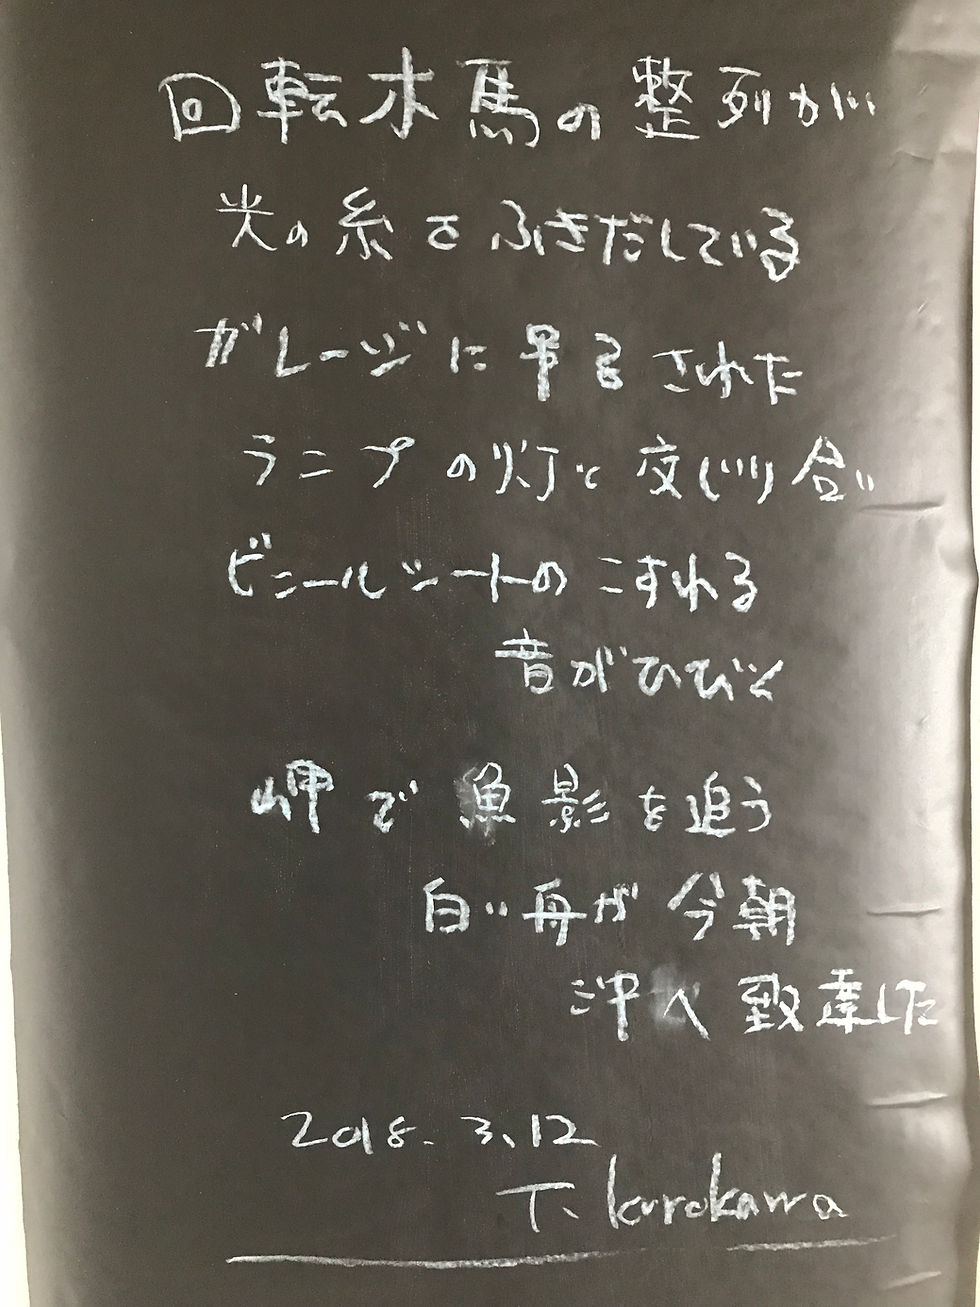 回転木馬の整列が
光の糸をふきだしている
ガレージに吊るされた
ランプの灯と交じり合い
ビニールシートのこすれる
音がひびく
岬で魚影を追う
白い舟が今朝
沖へ到達した
2018.3.12
T. Kurokawa